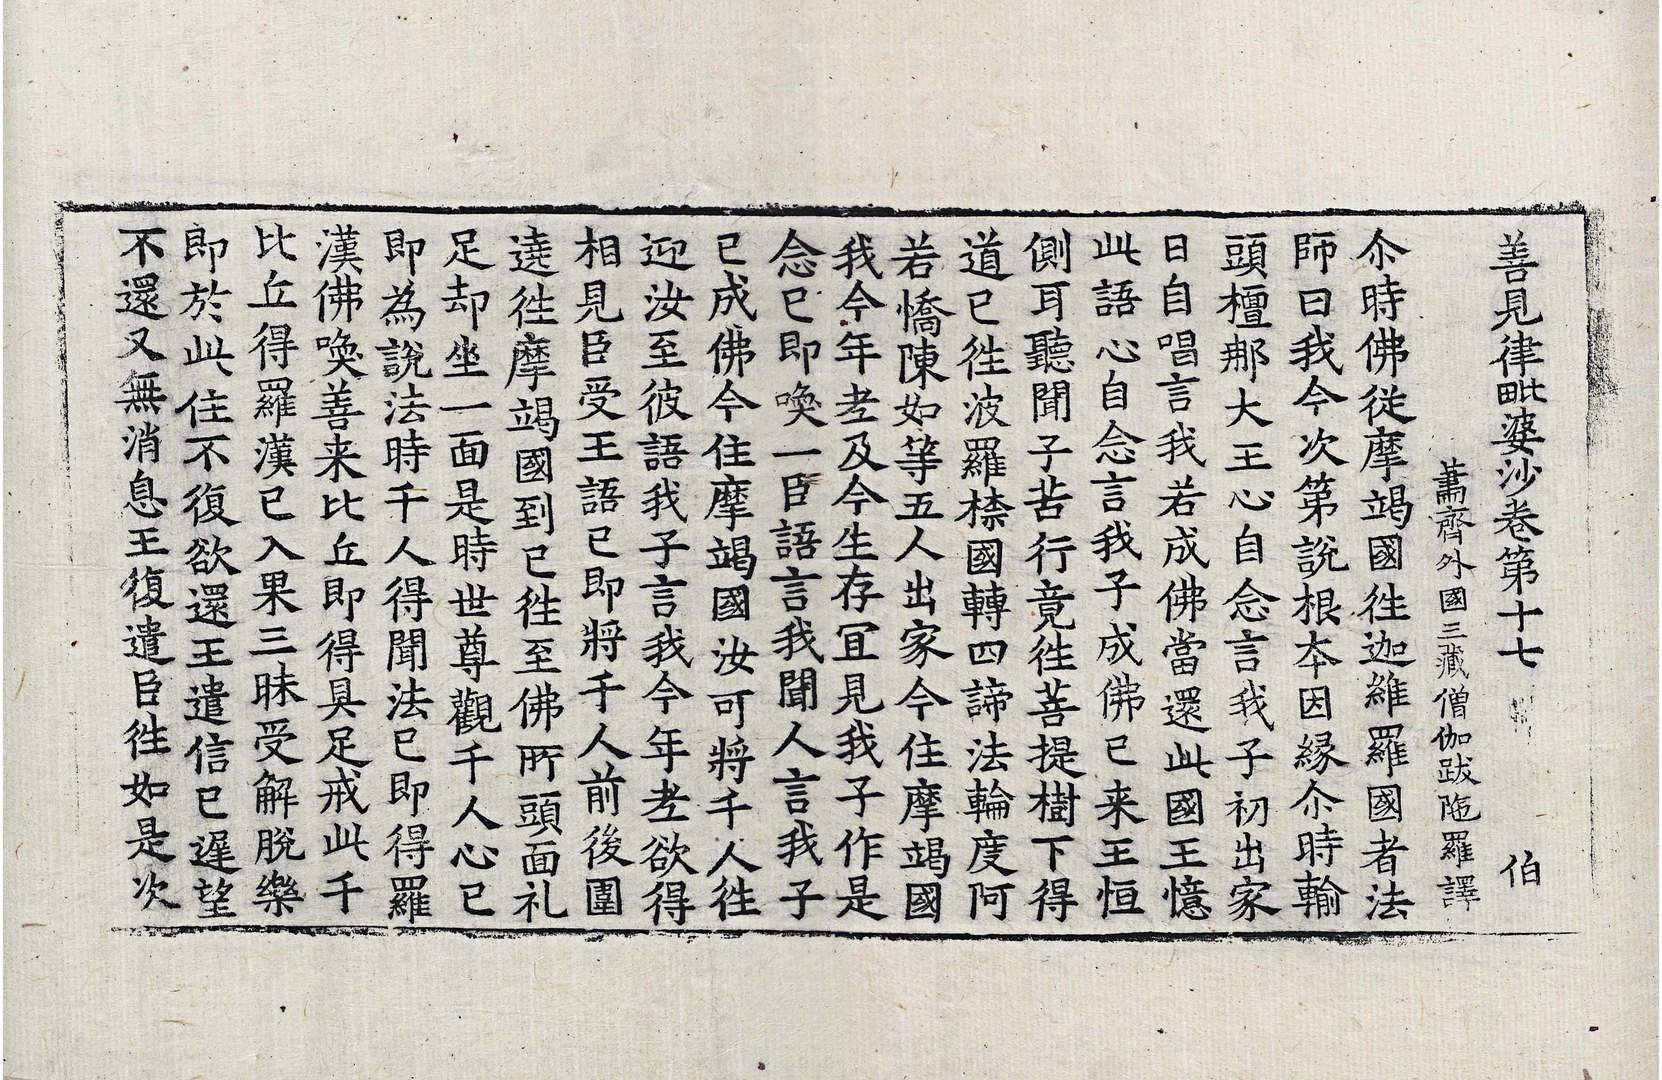 善見律毗婆沙卷第十七 伯
蕭齊外國三藏僧伽跋陁羅譯
尒時佛從摩竭國徃迦維羅國者法
師曰我今次第說根本因緣尒時輸
頭檀那大王心自念言我子初出家
日自唱言我若成佛當還此國王憶
此語心自念言我子成佛已来王恒
側耳聽聞子苦行竟徃菩提樹下得
道已徃波羅㮈國轉四諦法輪度阿
若憍陳如等五人出家今住摩竭國
我今年老及今生存冝見我子作是
念已即喚一臣語言我聞人言我子
已成佛今住摩竭國汝可將千人徃
迎汝至彼語我子言我今年老欲得
相見臣受王語已即將千人前後圍
遶徃摩竭國到已徃至佛所頭面礼
足却坐一面是時世尊觀千人心已
即為說法時千人得聞法已即得羅
漢佛喚善来比丘即得具足戒此千
比丘得羅漢已入果三昧受解脫樂
即於此住不復欲還王遣信已遲望
不還又無消息王復遣臣徃如是次